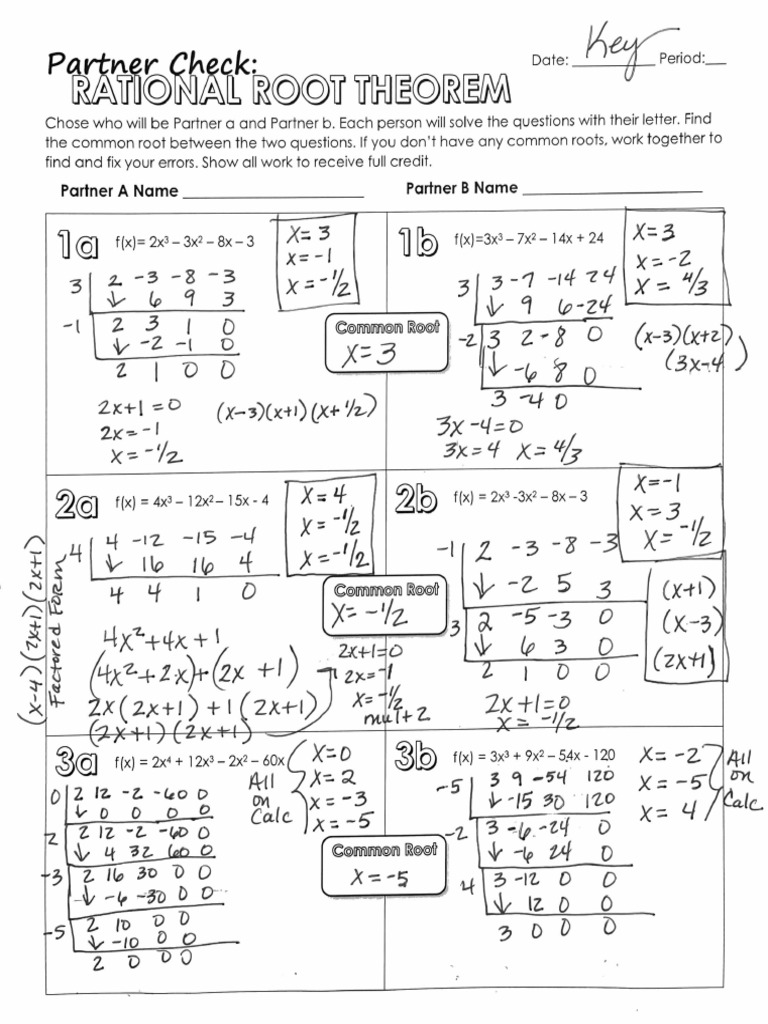 Key
Partner Check:
Date: ________ Period:__
RATIONAL ROOT THEOREM
Chose who will be Partner a and Partner b. Each person will solve the questions with their letter. Find
the common root between the two questions. If you don't have any common roots, work together to
find and fix your errors. Show all work to receive full credit.
Partner A Name ____________________
Partner B Name ____________________
1a
f(x)= 2x³ – 3x² – 8x – 3
x=3
x=-1
x=-1/2
3 2 -3 -8 -3
↓ 6 9 3
-1 2 3 1 0
↓ -2 -1 0
2 1 0 0
2x+1=0
2x=-1
x=-1/2
(x-3)(x+1)(x+1/2)
Common Root
x=3
1b
f(x)=3x³ – 7x² – 14x + 24
x=3
x=-2
x=4/3
3 3 -7 -14 24
↓ 9 6 -24
-2 3 2 -8 0
↓ -6 8 0
3 -4 0
(x-3)(x+2)
(3x-4)
3x-4=0
3x=4 x=4/3
2a
f(x) = 4x³ – 12x² – 15x - 4
x=4
x=-1/2
x=-1/2
4 4 -12 -15 -4
↓ 16 16 4
4 4 1 0
4x²+4x+1
(4x²+2x)+(2x+1)
2x(2x+1)+1(2x+1)
(2x+1)(2x+1)
2x+1=0
2x=-1
x=-1/2
mult 2
(x-4)(2x+1)(2x+1)
Factored Form
Common Root
x=-1/2
2b
f(x) = 2x³ -3x² – 8x – 3
x=-1
x=3
x=-1/2
-1 2 -3 -8 -3
↓ -2 5 3
3 2 -5 -3 0
↓ 6 3 0
2 1 0 0
(x+1)
(x-3)
(2x+1)
2x+1=0
x=-1/2
3a
f(x) = 2x⁴ + 12x³ – 2x² – 60x
x=0
x=2
x=-3
x=-5
All
on
Calc
0 2 12 -2 -60 0
↓ 0 0 0 0
2 2 12 -2 -60 0
↓ 4 32 60 0
-3 2 16 30 0 0
↓ -6 -30 0 0
-5 2 10 0 0
↓ -10 0 0
2 0 0 0
Common Root
x=-5
3b
f(x) = 3x³ + 9x² – 54x - 120
x=-2
x=-5
x=4
All
on
Calc
-5 3 9 -54 120
↓ -15 30 120
-2 3 -6 -24 0
↓ -6 24 0
4 3 -12 0 0
↓ 12 0 0
3 0 0 0